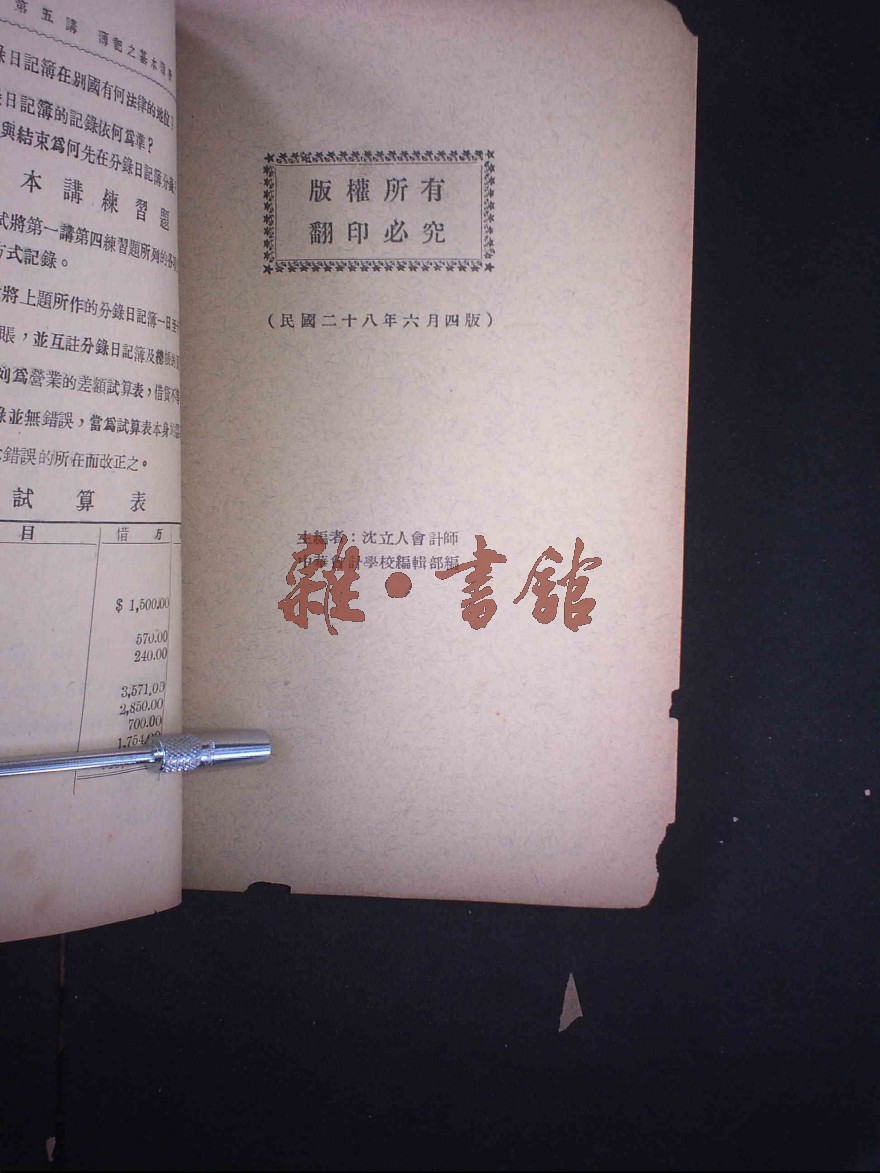 第五講 簿記之基本
錄日記簿在別國有何法律的地位?
日記簿的記錄依何爲準?
與結束爲何先在分錄日記簿分錄
本講練習題
試將第一講第四練習題所列的各
方式記錄。
將上題所作的分錄日記簿一日至十
賬,並互註分錄日記簿及總
列爲營業的差額試算表,借貸不
錄並無錯誤,當爲試算表本身
錯誤的所在而改正之。
試算表
目 借方
$ 1,500.00
570.00
240.00
3,571.00
2,850.00
700.00
1,754.00
版權所有
翻印必究
(民國二十八年六月四版)
主編者:沈立人會計師
中華會計學校編輯部編
雜·書館